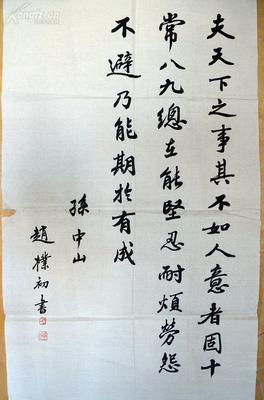 夫天下之事其不如人意者固十
常八九總在能堅忍耐煩勞怨
不避乃能期於有成
孫中山
趙樸初書